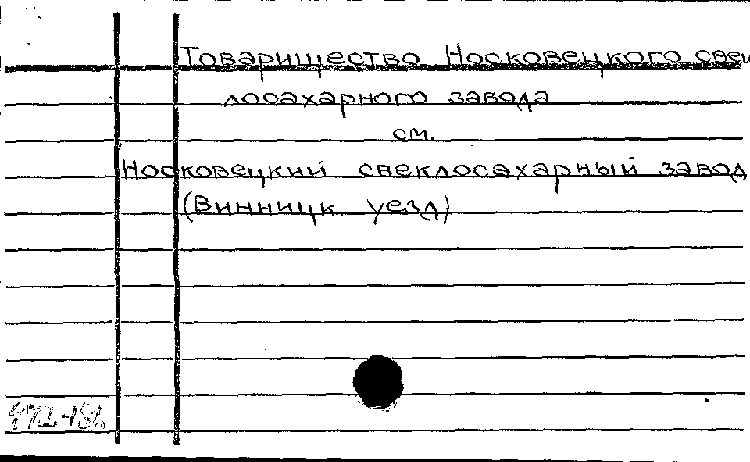 Товарищество Носковецкого свек
лосахарного завода
см.
Носковецкий свеклосахарный завод
(Винницк. уезд)